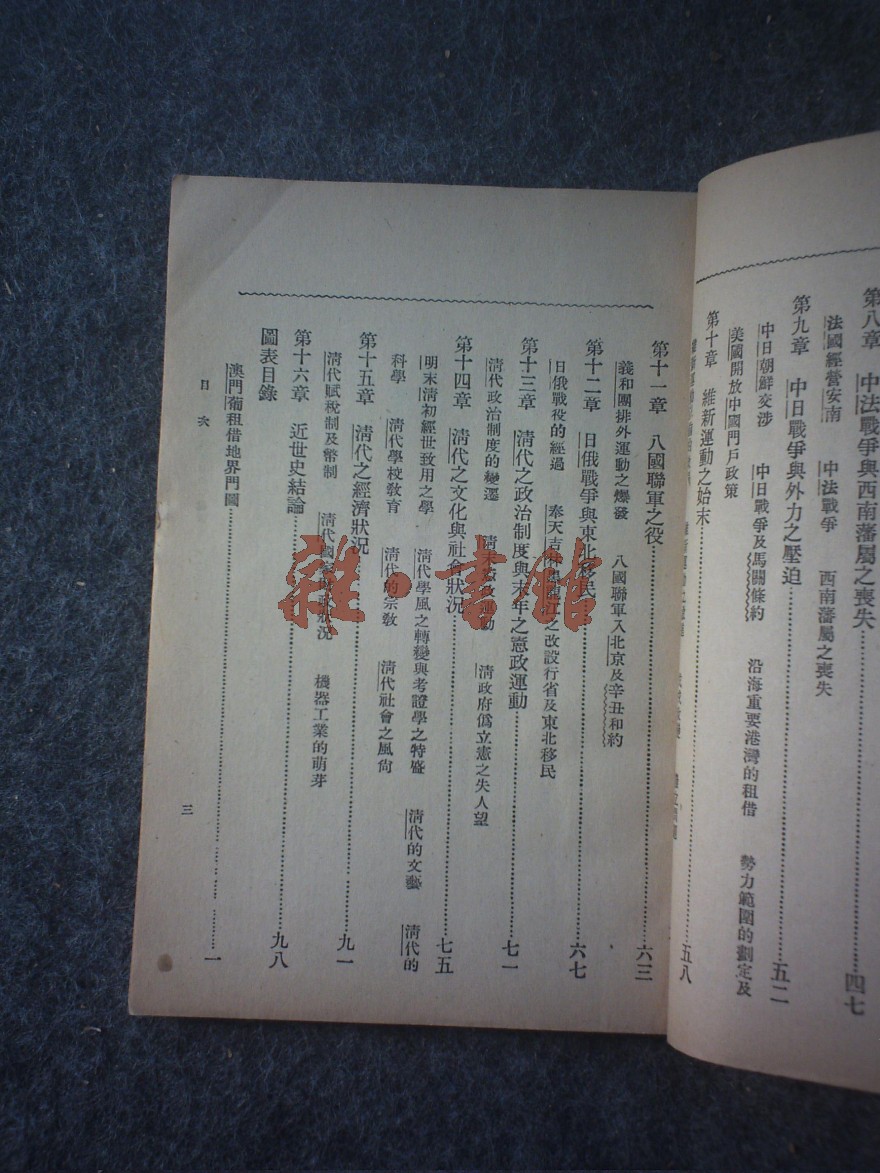 第八章　中法戰爭與西南藩屬之喪失……四七
法國經營安南　中法戰爭　西南藩屬之喪失
第九章　中日戰爭與外力之壓迫……五二
中日朝鮮交涉　中日戰爭及馬關條約　沿海重要港灣的租借　勢力範圍的劃定及
美國開放中國門戶政策
第十章　維新運動之始末……五八
第十一章　八國聯軍之役……六三
義和團排外運動之爆發　八國聯軍入北京及辛丑和約
第十二章　日俄戰爭與東北移民……六七
日俄戰役的經過　奉天吉林黑龍江之改設行省及東北移民
第十三章　清代之政治制度與末年之憲政運動……七一
清代政治制度的變遷　清末憲政運動　清政府僞立憲之失人望
第十四章　清代之文化與社會狀況……七五
明末清初經世致用之學　清代學風之轉變與考證學之特盛　清代的文藝　清代的
科學　清代學校教育　清代的宗教　清代社會之風尚
第十五章　清代之經濟狀況……九一
清代賦稅制及幣制　清代國　狀況　機器工業的萌芽
第十六章　近世史結論……九八
圖表目錄
澳門葡租借地界門圖……一
目次
三
雜·書館